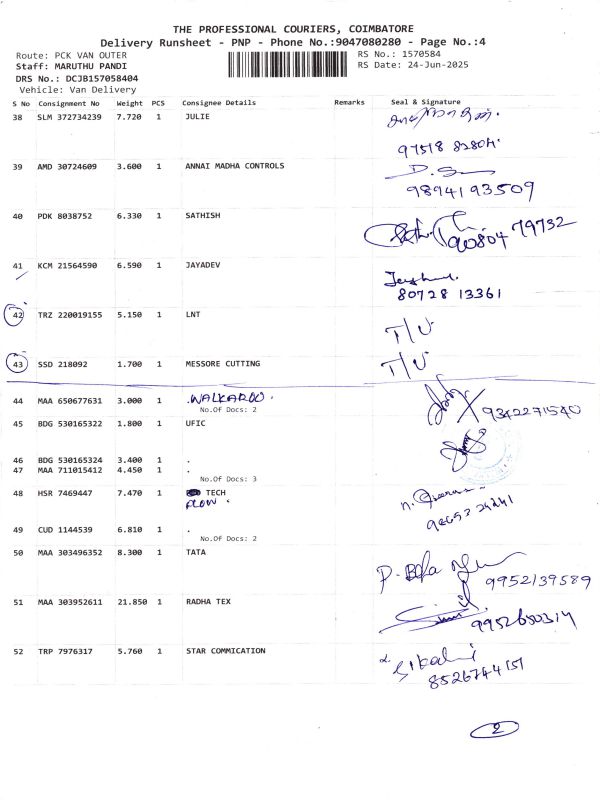 THE PROFESSIONAL COURIERS, COIMBATORE
Delivery Runsheet - PNP - Phone No.:9047080280 - Page No.:4
Route: PCK VAN OUTER RS No.: 1570584
Staff: MARUTHU PANDI RS Date: 24-Jun-2025
DRS No.: DCJB157058404
Vehicle: Van Delivery
S No Consignment No Weight PCS Consignee Details Remarks Seal & Signature
38 SLM 372734239 7.720 1 JULIE
97518 82804
39 AMD 30724609 3.600 1 ANNAI MADHA CONTROLS
9894193509
40 PDK 8038752 6.330 1 SATHISH
90804 79732
41 KCM 21564590 6.590 1 JAYADEV
80728 13361
42 TRZ 220019155 5.150 1 LNT T/U
43 SSD 218092 1.700 1 MESSORE CUTTING T/U
44 MAA 650677631 3.000 1 .WALKAROO.
No.Of Docs: 2 9342271540
45 BDG 530165322 1.800 1 UFIC
46 BDG 530165324 3.400 1 .
47 MAA 711015412 4.450 1 .
No.Of Docs: 3
48 HSR 7469447 7.470 1 TECH
FLOW .
49 CUD 1144539 6.810 1 .
No.Of Docs: 2
50 MAA 303496352 8.300 1 TATA
9952139589
51 MAA 303952611 21.850 1 RADHA TEX
9952650314
52 TRP 7976317 5.760 1 STAR COMMICATION
8526744151
2